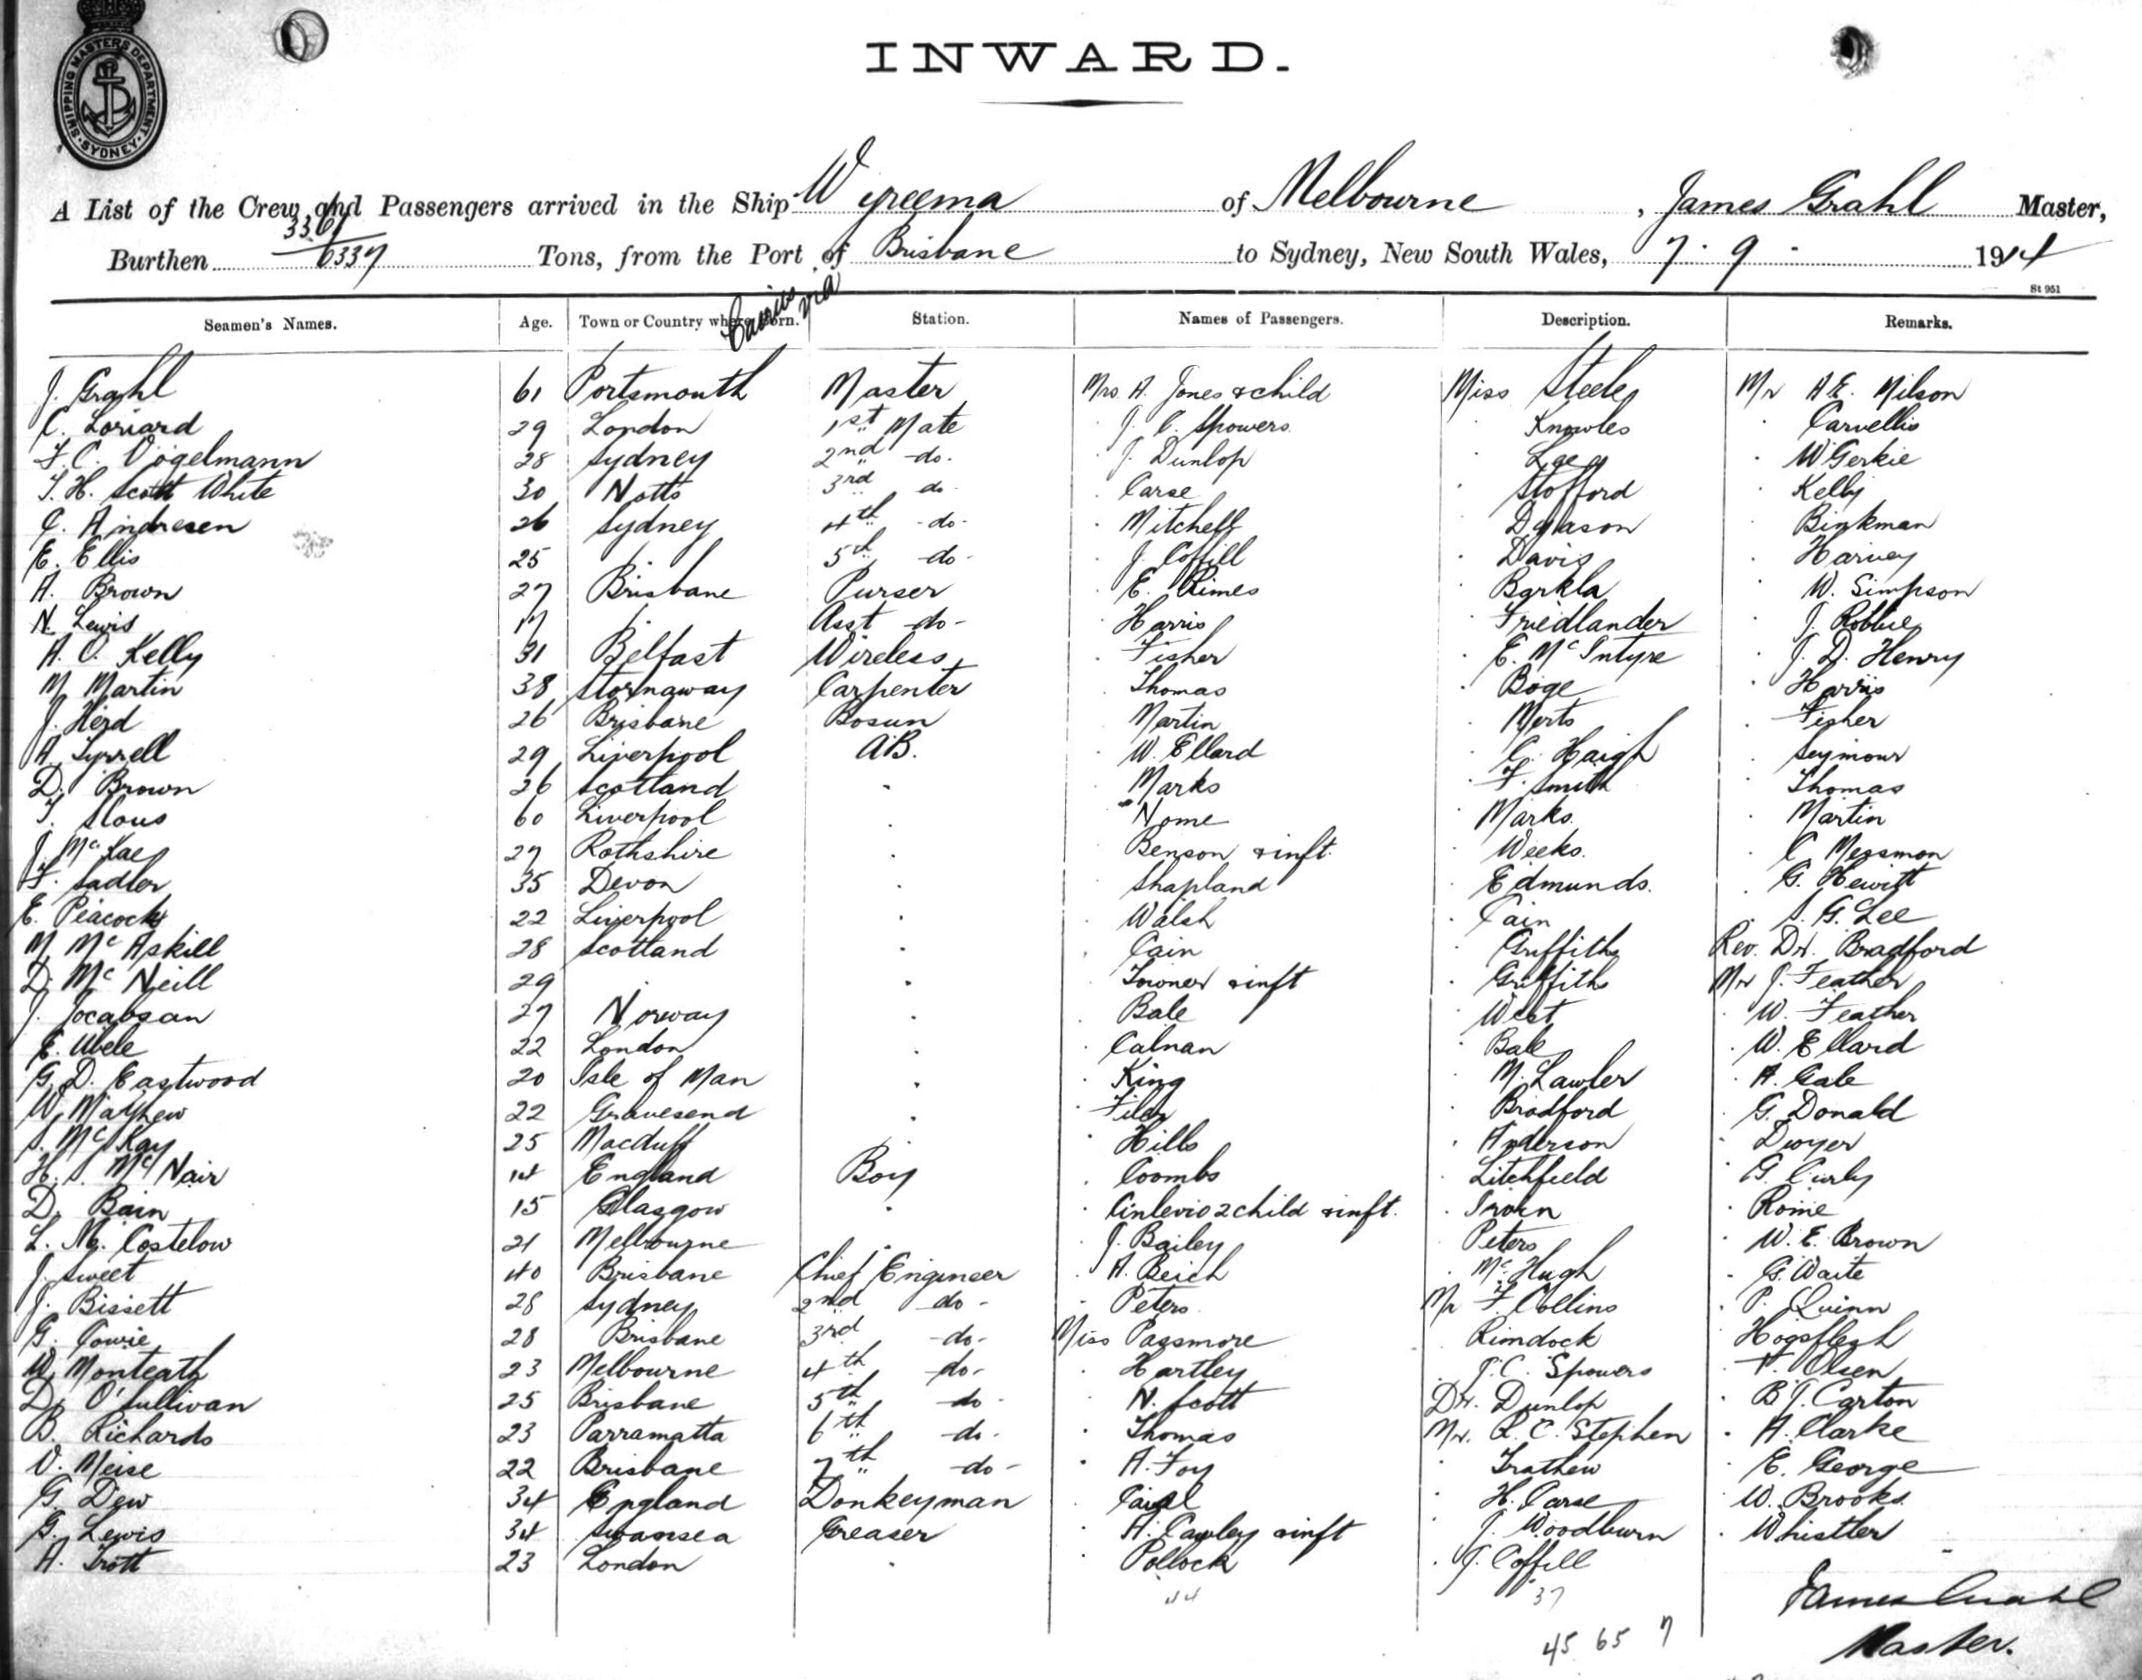 SHIPPING MASTERS DEPARTMENT · SYDNEY ·
INWARD.
A List of the Crew and Passengers arrived in the Ship Wyreema of Melbourne, James Grahl Master,
Burthen 6337 Tons, from the Port of Brisbane to Sydney, New South Wales, 7. 9. 1914
Cairns via
St 951
Seamen's Names. Age. Town or Country where Born. Station. Names of Passengers. Description. Remarks.
J. Grahl 61 Portsmouth Master Mrs A. Jones & child Miss Steele Mr A E. Milson
C. Loriard 29 London 1st Mate " J. C. Spowers " Knowles " Carvellis
F. C. Vogelmann 28 Sydney 2nd - do - " J. Dunlop " Lee " W Gerkie
T. H. Scott White 30 Notts 3rd do " Carse " Stofford " Kelly
C. Andresen 26 Sydney 4th - do - " Mitchell " Dyason " Binkman
E. Ellis 25 " 5th - do - " J. Coffill " Davis " Harvey
A. Brown 27 Brisbane Purser " E. Rimes " Barkla " W. Simpson
N. Lewis 17 " Asst - do - " Harris " Friedlander " J. Robbie
A. O. Kelly 31 Belfast Wireless " Fisher " E. McIntyre " J. D. Henry
M Martin 38 Stornaway Carpenter " Thomas " Boge " Harris
J. Herd 26 Brisbane Bosun " Martin " Merts " Fisher
A. Tyrrell 29 Liverpool AB. " W. Ellard " C. Haigh " Seymour
D. Brown 36 Scotland " " Marks " F. Smith " Thomas
T. Slous 60 Liverpool " " Nome " Marks " Martin
J. Mc 27 Rothshire " " Benson & inft " Weeks " C
F. Sadler 35 Devon " " Shapland " Edmunds " G. Hewitt
E. Peacock 22 Liverpool " " Walsh " Cain " S. G. Lee
M McAskill 28 Scotland " " Cain " Griffiths Rev. Dr. Bradford
D. McNeill 29 " " " Towner & inft " Griffiths Mr J. Feather
J. Jocabsan 27 Norway " " Bale " West " W. Feather
E. Uhele 22 London " " Calnan " Bale " W. Ellard
G. D. Eastwood 20 Isle of Man " " King " M. Lawler " A. Cale
W. Mayhew 22 Gravesend " " Filer " Bradford " G. Donald
S. McKay 25 Macduff " " Hills " Anderson " Dwyer
H. S. McNair 14 England Boy " Coombs " Litchfield " G. Curly
D. Bain 15 Glasgow " " 2 child & inft. " Irvin " Rome
L. Costelow 21 Melbourne " " J. Bailey " Peters " W. E. Brown
J. Sweet 40 Brisbane Chief Engineer " A. Beich " McHugh " G. Waite
J. Bissett 28 Sydney 2nd do - " Peters Mr F. Collins " P. Quinn
G. Cowie 28 Brisbane 3rd - do - Miss Passmore " Rimdock " Hogsflesh
W. Monteath 23 Melbourne 4th do - " Hartley " J. C. Spowers " Olsen
D. O'Sullivan 25 Brisbane 5th do " N. Scott Dr. Dunlop " B J. Carton
B. Richards 23 Parramatta 6th - do - " Thomas Mr. R. C. Stephen " A. Clarke
V. Meise 22 Brisbane 7th - do - " A. Foy " Trathew " E. George
G. Dew 34 England Donkeyman " " H. Carse " W. Brooks
G. Lewis 34 Swansea Greaser " A. Cayley & inft " J. Woodburn " Whistler
A. Trott 23 London " " Pollock " J. Coffill
44 37
James Grahl
45 65 7
Master.